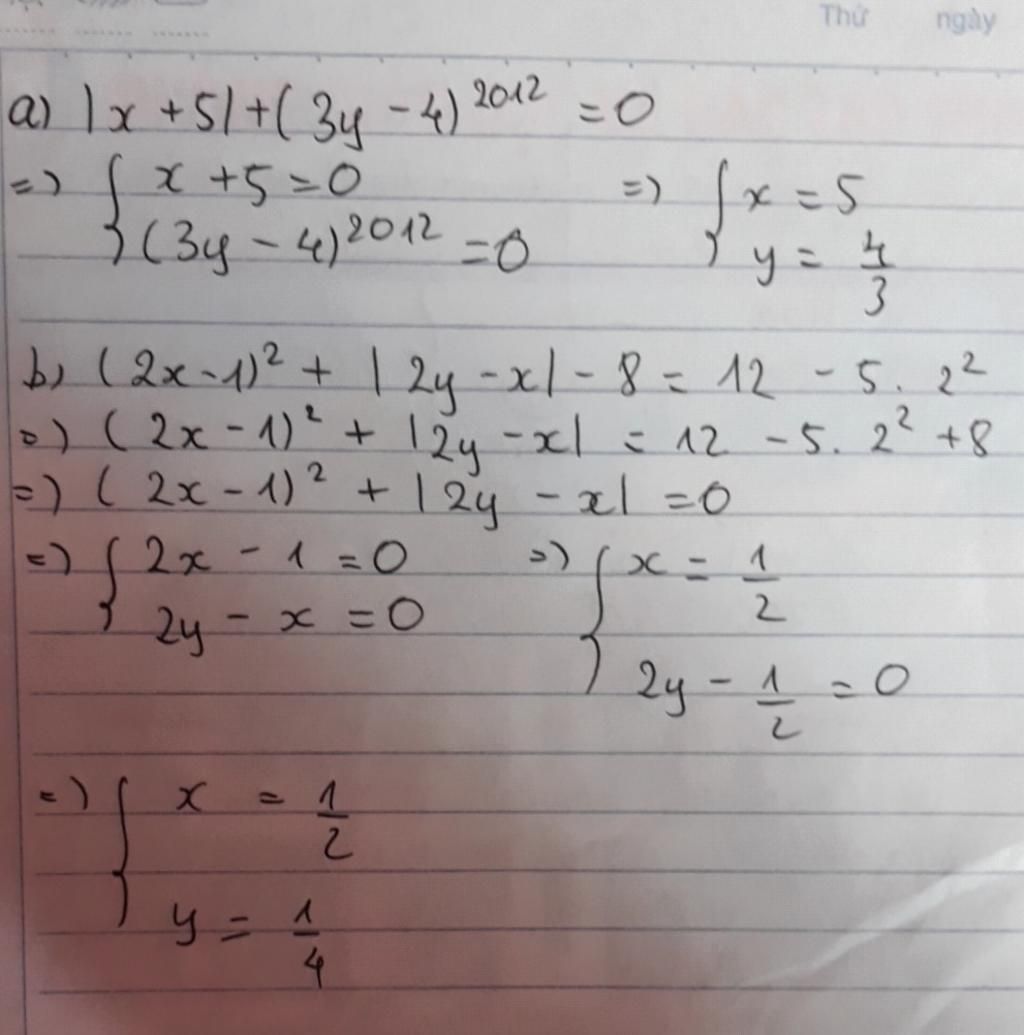 Thứ ngày
a) |x + 5| + (3y - 4)^2012 = 0
=> { x + 5 = 0 => { x = 5
(3y - 4)^2012 = 0 y = 4/3
b) (2x - 1)² + |2y - x| - 8 = 12 - 5. 2²
=> (2x - 1)² + |2y - x| = 12 - 5. 2² + 8
=> (2x - 1)² + |2y - x| = 0
=> { 2x - 1 = 0 => { x = 1/2
2y - x = 0
2y - 1/2 = 0
=> { x = 1/2
y = 1/4